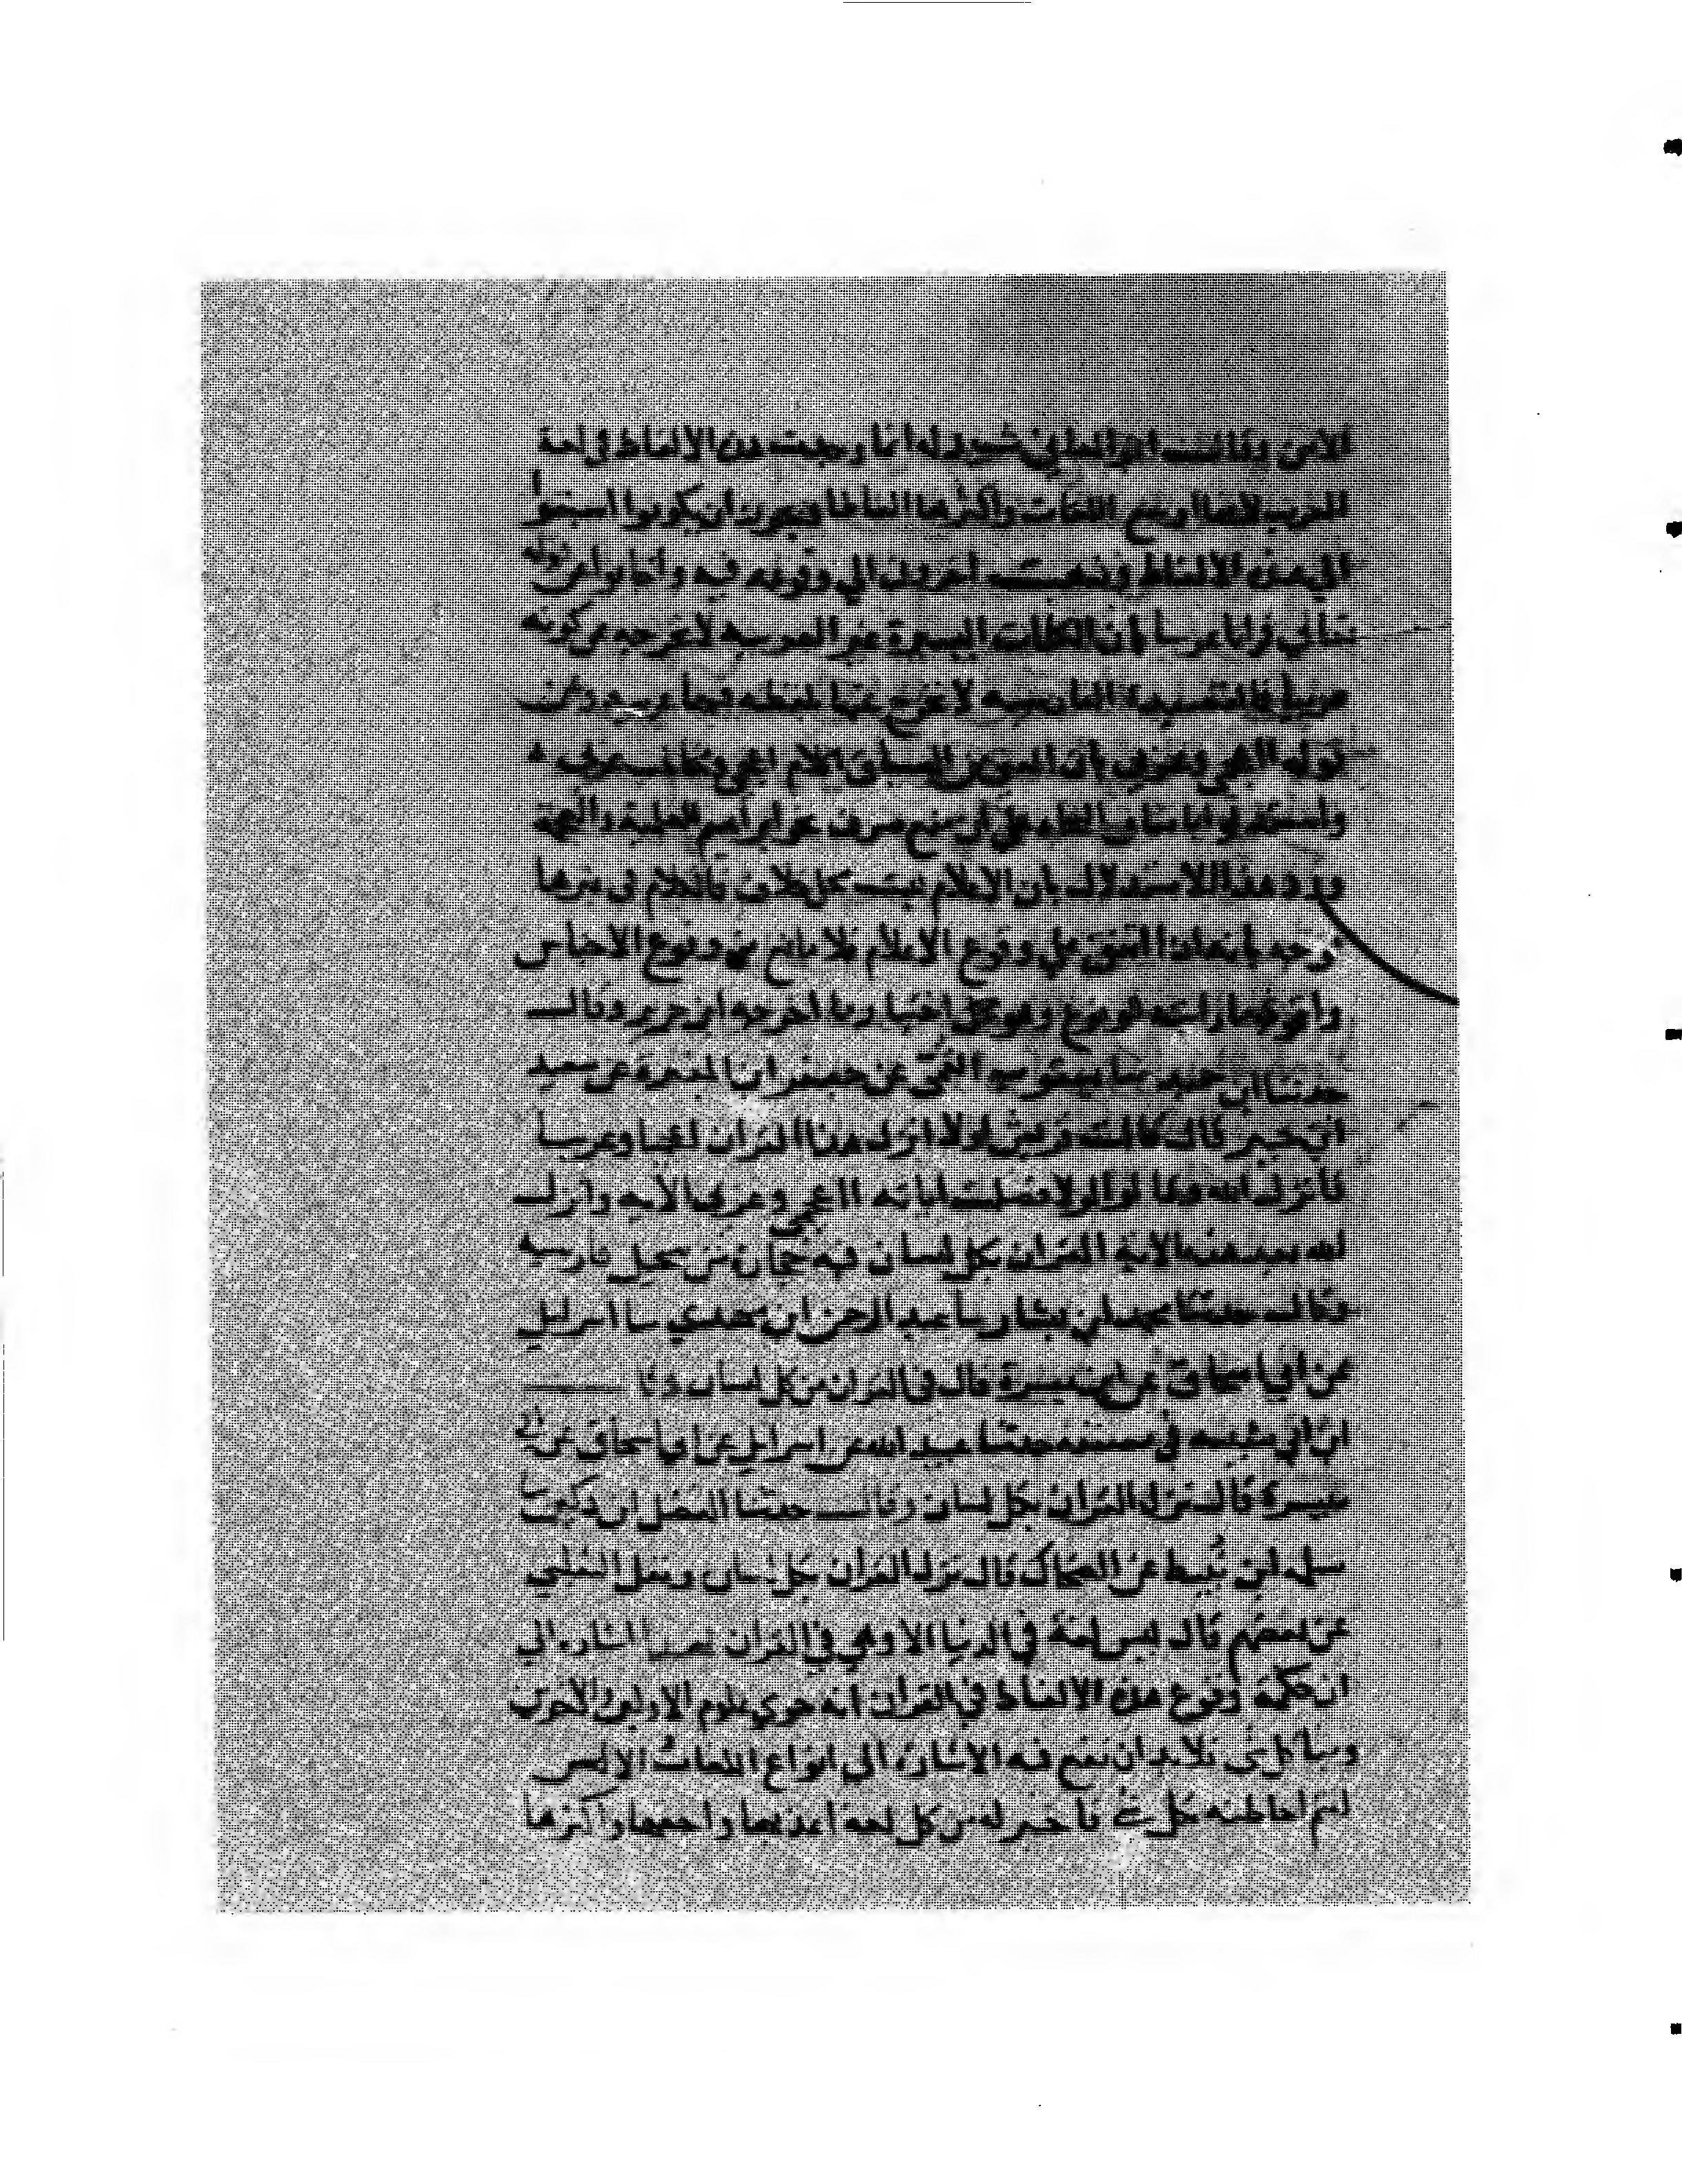 الامن وقالت ابو المعالي شيدله انما وجدت هذه الالفاظ في لغة
العرب لانها اوسع اللغات واكثرها الفاظا ويجوز ان يكونوا سبقوا
الي هذه الالفاظ وذهب اخرون الي وقوعه فيه واجابوا عن قوله
تعالي قرانا عربيا بان الكلمات اليسيرة غير العربيه لا تخرجه عن كونه
عربيا فالقصيدة الفارسيه لا تخرج عنها بلفظه فيها عربيه وعن
قوله ااعجمي وعربي بان المعني من السياق اكلام اعجمي ومخاطب عربي
واستدل باتفاق النحاه علي ان منع صرف نحو ابراهيم للعلمية والعجمة
ورد هذا الاستدلال بان الاعلام ليست محل خلاف فالكلام في غيرها
وجه بانه اذا اتفق علي وقوع الاعلام فلا مانع من وقوع الاجناس
واقوي ما رايته للوقوع وهو اختياري ما اخرجه ابن جرير وقال
حدثنا ابن حميد حدثنا يعقوب القمي عن جعفر ابن المغيرة عن سعيد
ابن جبير قال قالت قريش لولا انزل هذا القران اعجميا وعربيا
فانزل الله وقالوا لولا فصلت اياته ااعجمي وعربي الاية وانزل
الله بعد هذه الاية القران بكل لسان فيه حجارة من سجيل فارسية
وقال حدثنا محمد ابن بشار نبا عبد الرحمن ابن مهدي نبا اسرايل
عن ابي اسحاق عن ابي ميسرة قال في القران من كل لسان وقال
ابن ابي شيبه في مصنفه حدثنا عبيد الله عن اسرايل عن ابي اسحاق عن ابي
ميسرة قال نزل القران بكل لسان وقال حدثنا الفضل ابن دكين نبا
سلمه ابن نبيط عن الضحاك قال نزل القران بكل لسان ونقل الثعلبي
عن بعضهم قال ليس لغة في الدنيا الا وهي في القران فهذا اشارة الي
ان حكمة وقوع هذه الالفاظ في القران انه حوي علوم الاولين والاخرين
ونبا كل شي فلا بد ان تقع فيه الاشارة الي انواع اللغات والالسن
ليتم احاطته بكل شي فاختير له من كل لغة اعذبها واخفها واكثرها